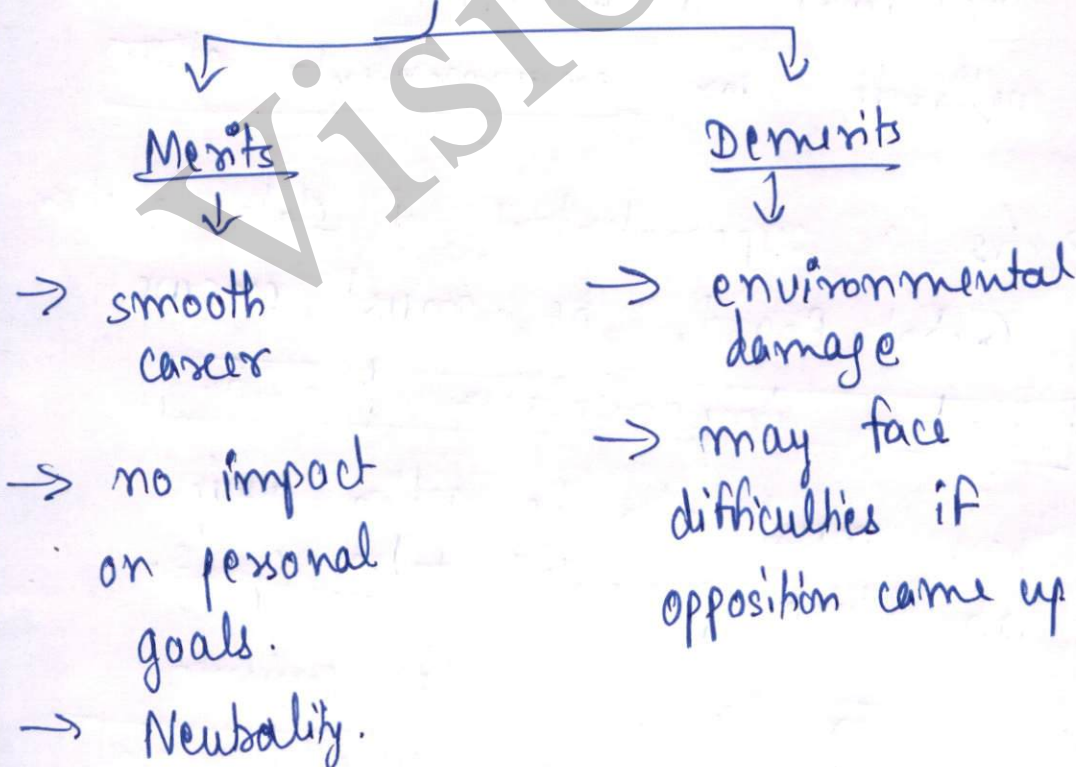 Merits
↓
→ smooth
career
→ no impact
on personal
goals.
→ Neutrality.
Demerits
↓
→ environmental
damage
→ may face
difficulties if
opposition came up
Visio